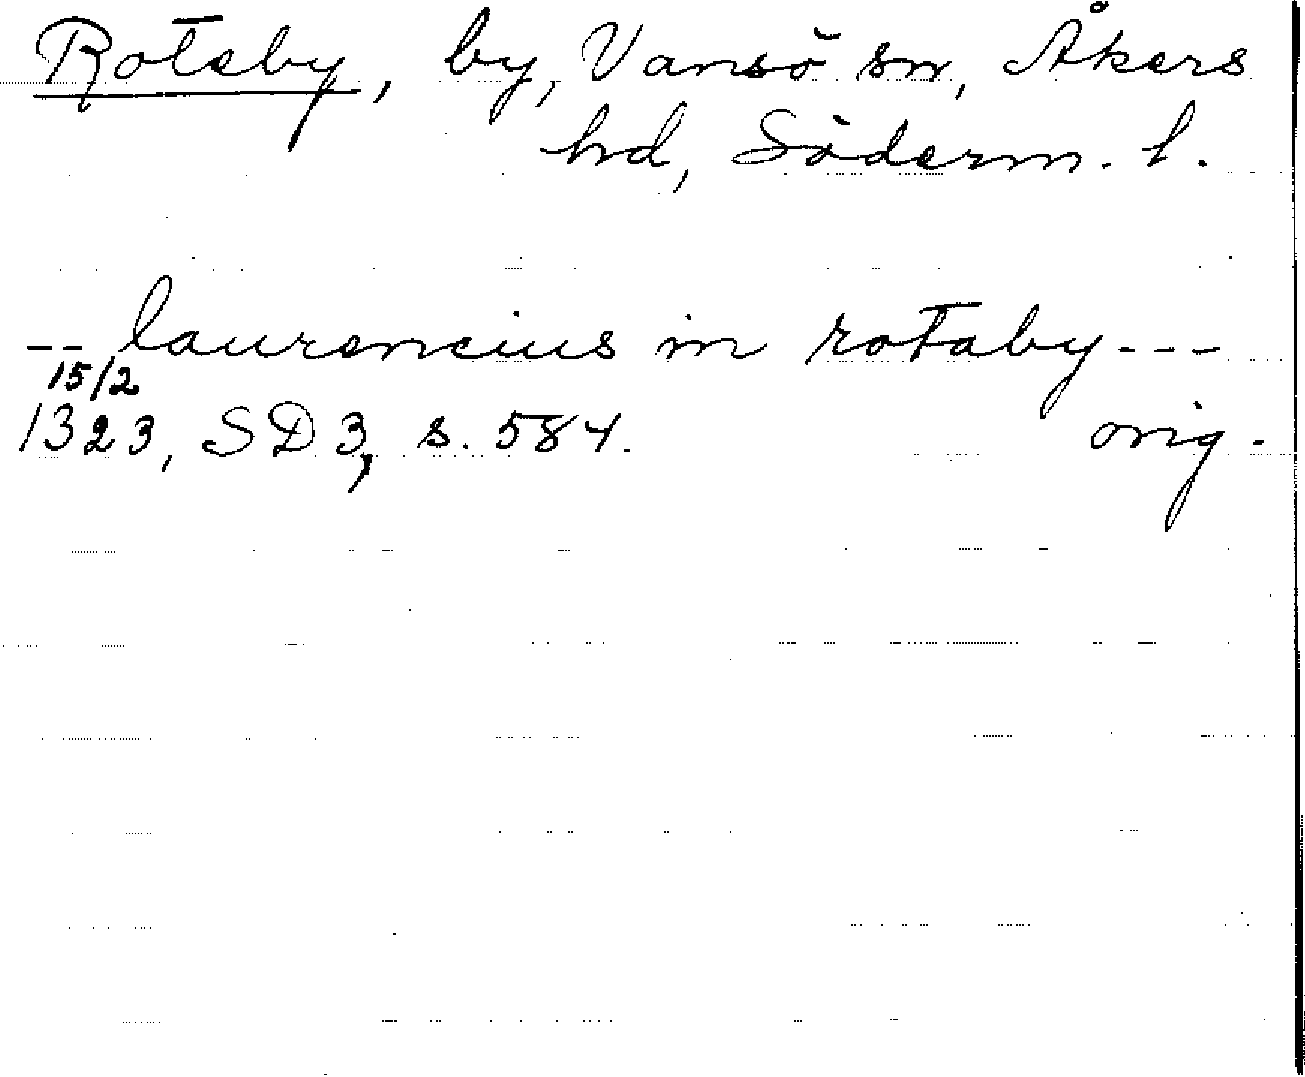 Roteby, by, Vansö sn, Åkers
hd, Söderm. l.
-- laurencius in rotaby ---
15/2
1323, SD 3, s. 584. orig.